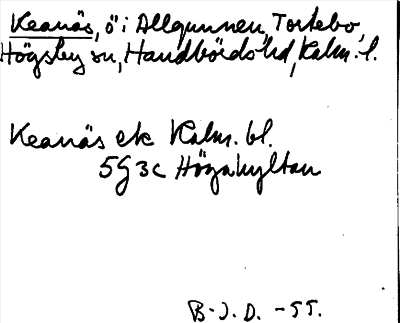 Keanäs, ö i Allgunnen, Tortebo,
Högsby sn, Handbörds hd, Kalm. l.
Keanäs ek Kalm. bl.
5G3c Högahyltan
B-J.D. -55.